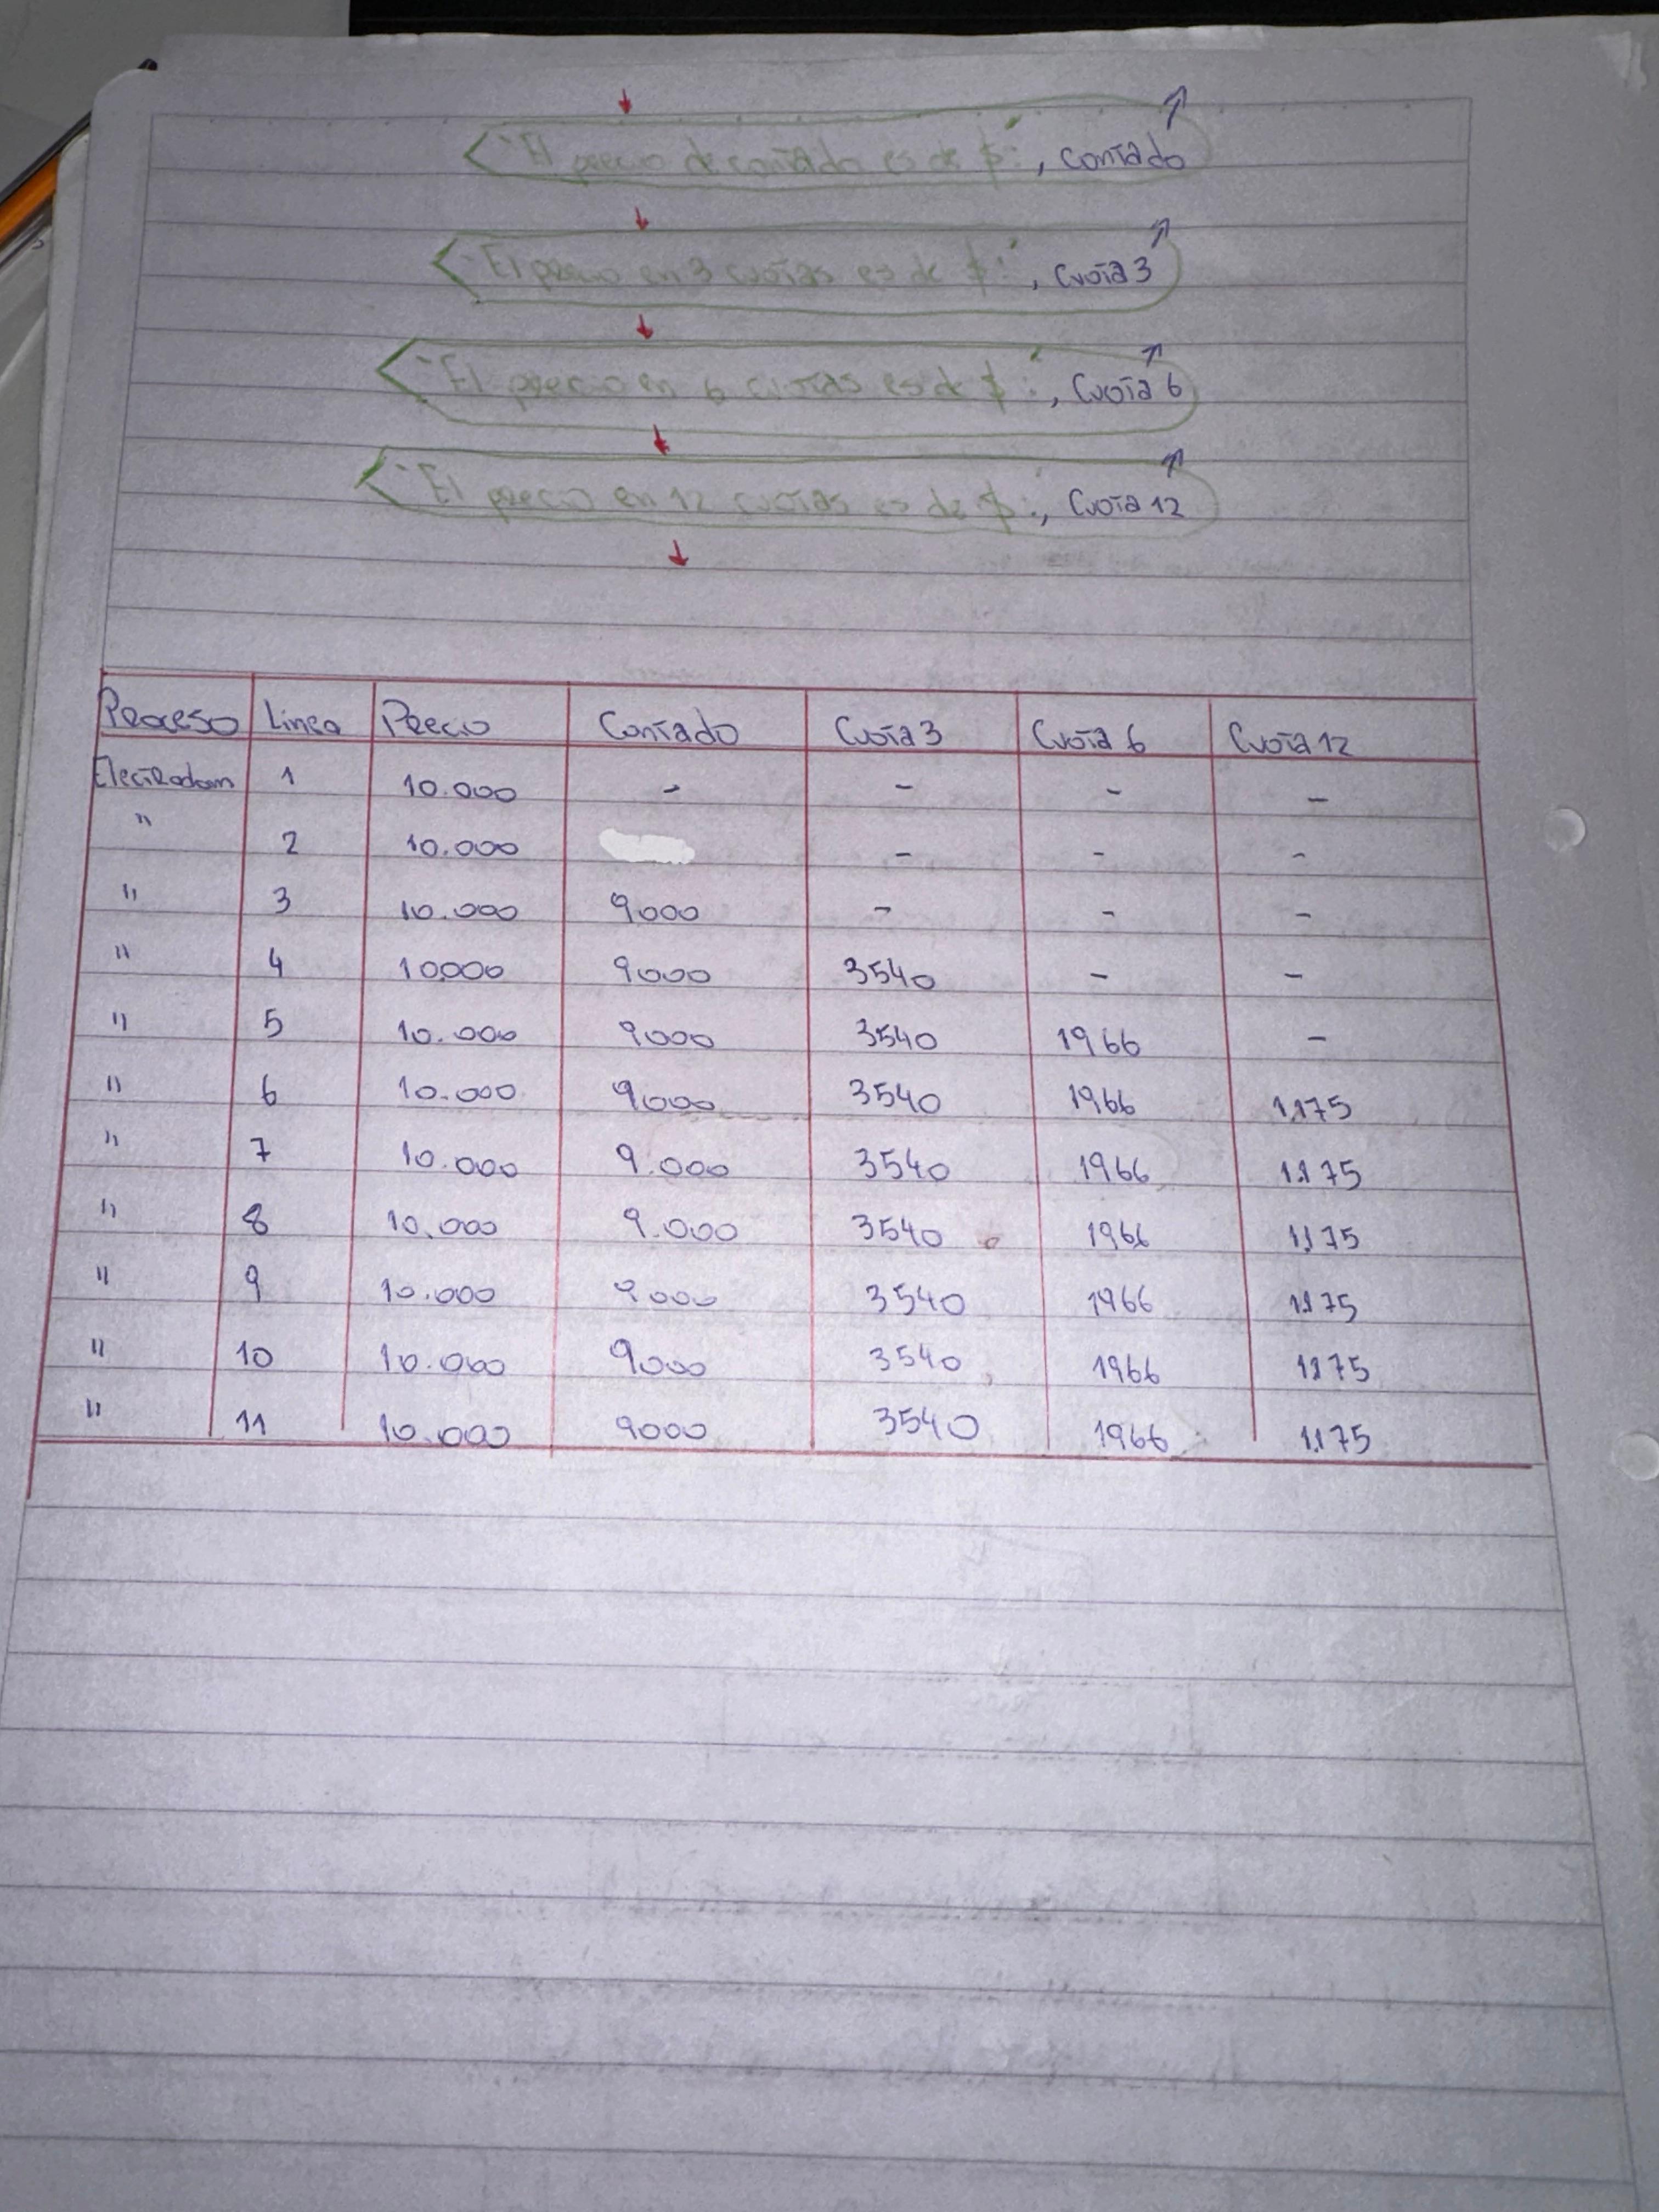 "El precio de contado es de $:", contado
"El precio en 3 cuotas es de $:", Cuota 3
"El precio en 6 cuotas es de $:", Cuota 6
"El precio en 12 cuotas es de $:, Cuota 12
Proceso Linea Precio Contado Cuota 3 Cuota 6 Cuota 12
Electrodom 1 10.000 - - - -
" 2 10.000 - - -
" 3 10.000 9000 - - -
" 4 10000 9000 3540 - -
" 5 10.000 9000 3540 1966 -
" 6 10.000 9000 3540 1966 1.175
" 7 10.000 9.000 3540 1966 1.175
" 8 10.000 9.000 3540 1966 1.175
" 9 10.000 9000 3540 1966 1.175
" 10 10.000 9000 3540 1966 1175
" 11 10.000 9000 3540 1966 1.175